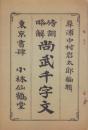 粤浦中村岩太郎編輯
傍訓
略解
尚武千字文
東京書肆 小林仙鶴堂